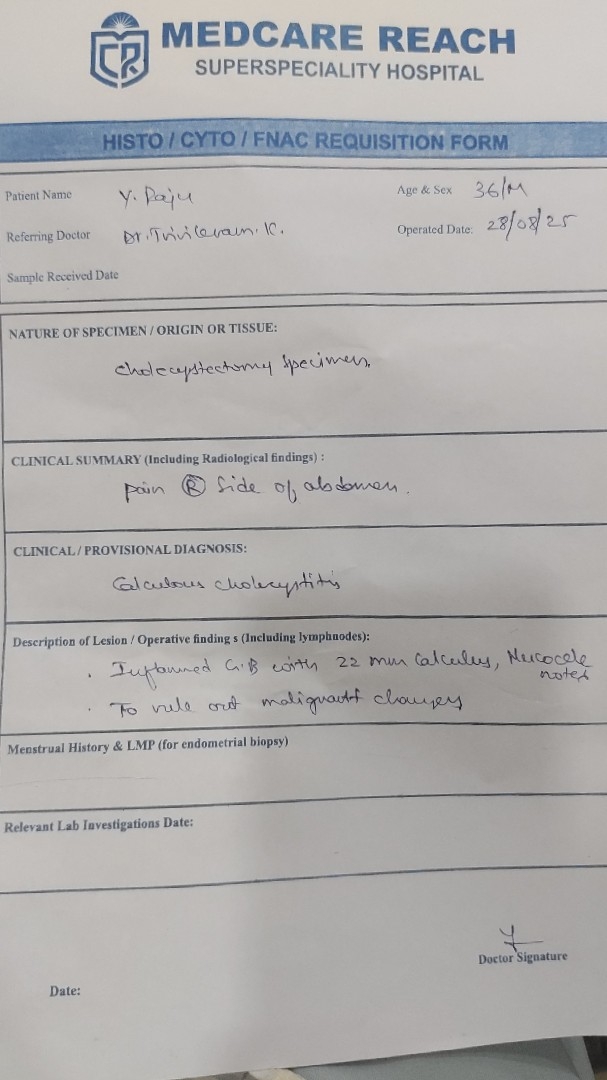 CR
MEDCARE REACH
SUPERSPECIALITY HOSPITAL
HISTO / CYTO / FNAC REQUISITION FORM
Patient Name Y. Raju Age & Sex 36/M
Referring Doctor Dr. K. Operated Date: 28/08/25
Sample Received Date
NATURE OF SPECIMEN / ORIGIN OR TISSUE:
Cholecystectomy Specimen.
CLINICAL SUMMARY (Including Radiological findings) :
pain Ⓡ Side of abdomen.
CLINICAL / PROVISIONAL DIAGNOSIS:
Calculous cholecystitis
Description of Lesion / Operative finding s (Including lymphnodes):
. Inflammed G.B with 22 mm Calculus, Mucocele
noted
. To rule out changes
Menstrual History & LMP (for endometrial biopsy)
Relevant Lab Investigations Date:
Doctor Signature
Date: